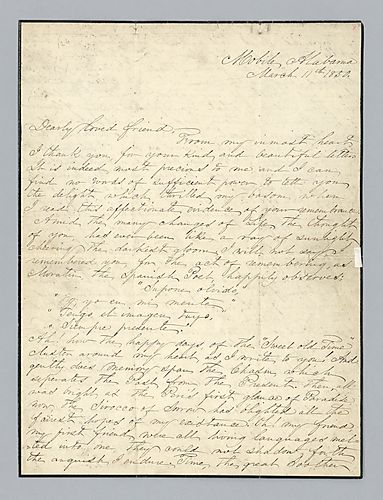 Mobile, Alabama
March. 11th
Dearly loved friend
From my inmost heart
I thank you, for your kind and beautiful letter.
It is indeed most precious to me and I can
find no words of sufficient power to tell you
the delight which thrilled my bosom, when
I read this affectionate evidence of your remembrance
Amid the many changes of Life, the thought
of you has ever been like a ray of sunlight
cheering the darkest gloom I will not say I
remembered you, for the act of remembering, as
Moratin, the Spanish Poet, happily observes;
"Supone olvido,
yo en mi mente
Tengo tu imagen,
Siempre presente."
Ah, how the happy days of the "Sweet old Time"
cluster around my heart, as I write to you, And
gently does Memory span the Chasm, which
separates the Past from the Present, then, all
was bright as the first glance of Paradise
now the Sirocco of Sorrow has blighted all the
fairest hopes of my existance. Oh, my friend
my first friend, were all living languages mel-
ted into one they would not shadow, forth
the anguish, I endure, Time, the great Soother